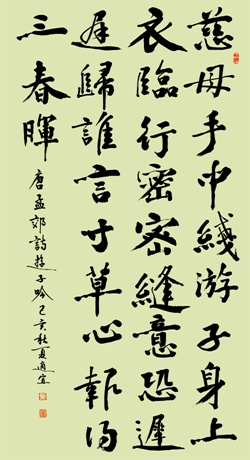 慈母手中綫游子身上
衣臨行密密縫意恐遲
遲歸誰言寸草心報得
三春暉
唐孟郊詩遊子吟己亥秋夏適宜